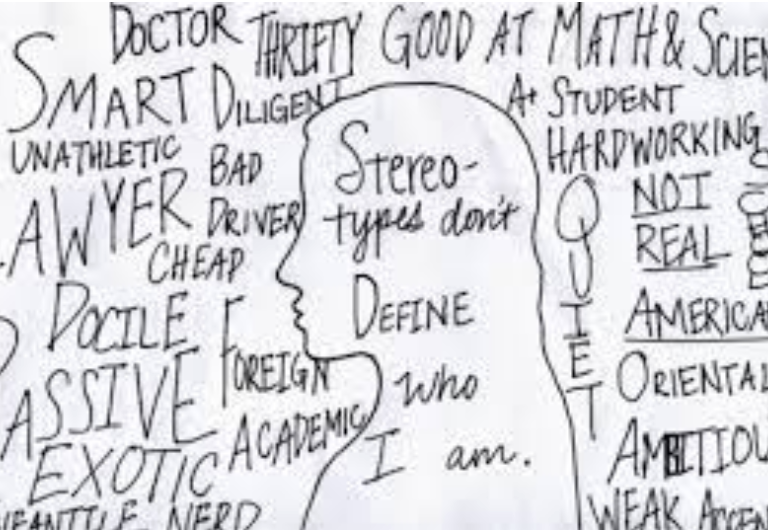 DOCTOR
THRIFTY
GOOD AT MATH & SCIEN
SMART
DILIGENT
A+ STUDENT
UNATHLETIC
BAD
DRIVER
HARDWORKING
LAWYER
CHEAP
DOCILE
FOREIGN
PASSIVE
ACADEMIC
EXOTIC
NERD
Stereo-
types don't
DEFINE
who
I am.
QUIET
NOT
REAL
AMERICA
ORIENTAL
AMBITIOU
WEAK